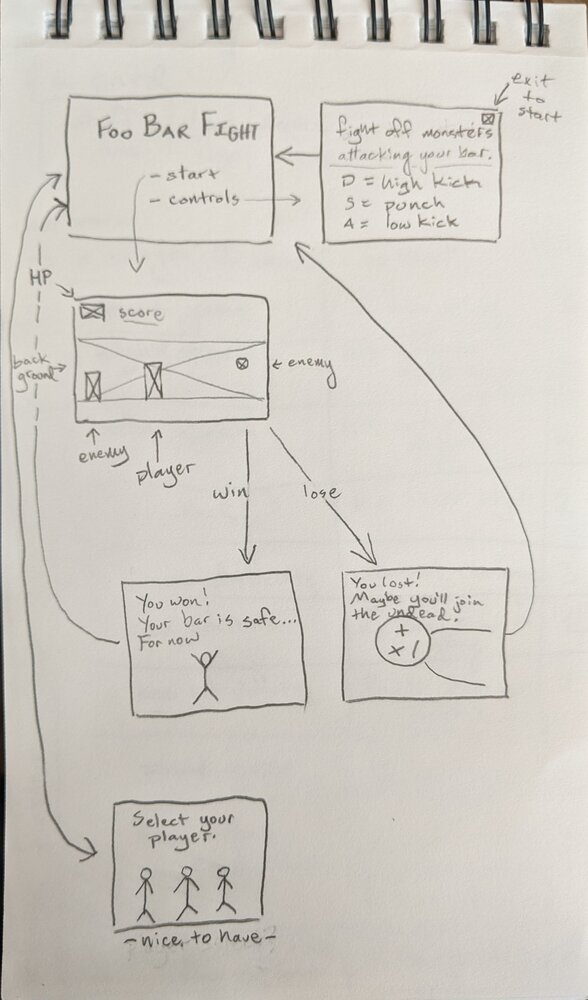 exit
to
start
FOO BAR FIGHT
- start
- controls
fight off monsters
attacking your bar.
D = high kick
S = punch
A = low kick
HP
score
back
ground
enemy
enemy
player
win
lose
You won!
Your bar is safe...
For now
You lost!
Maybe you'll join
the undead.
Select your
player.
- nice to have -